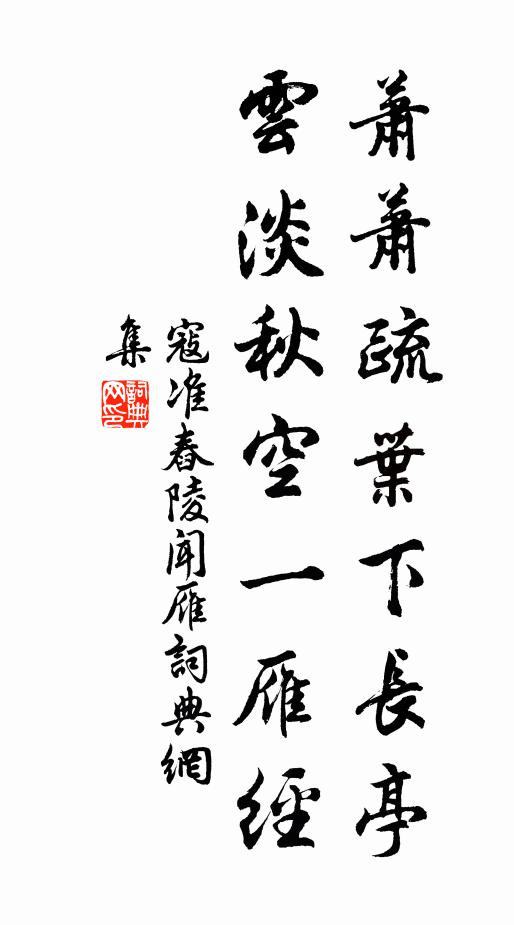 蕭蕭疏葉下長亭
雲淡秋空一雁經
寇准舂陵聞雁詞典網
集
詞典
网印